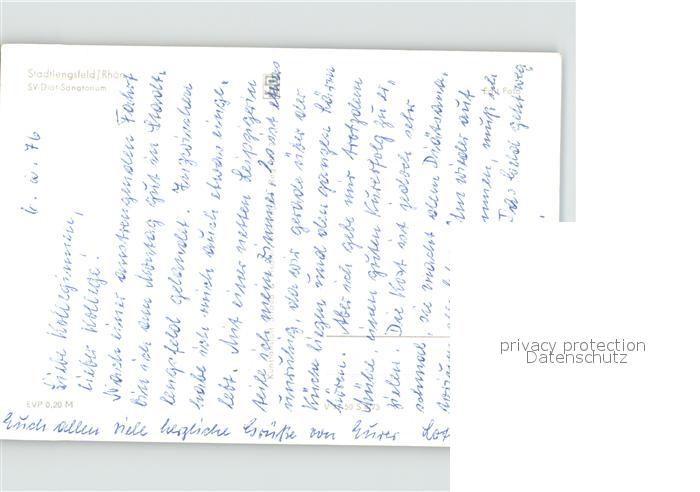 Stadtlengsfeld/Rhön
SV-Diät-Sanatorium
EVP 0,20 M
76
Liebe Kolleginnen,
lieber Kollege!
Nach einer anstrengenden Fahrt
bin ich am Montag gut in Stadt-
lengsfeld gelandet. Inzwischen
habe ich mich auch etwas einge-
lebt. Mit einer netten Leipzigerin
teile ich mein Zimmer. Es ist etwas
unruhig, da wir gerade über der
Küche liegen und den ganzen Lärm
hören. Aber ich gebe mir trotzdem
Mühe, einen guten Kurerfolg zu er-
zielen. Die Kost ist jedoch sehr
schmal, sie macht dem Diätsana-
Um wieder auf
muß ich
Das Geld geht weg
Euch allen viele herzliche Grüße von Eurer
privacy protection
Datenschutz